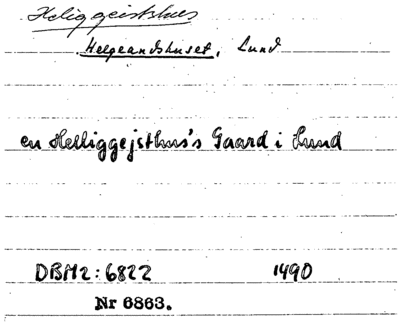 Helig geistshus
Helgeandshuset, Lund
en Helliggejsthus's Gaard i Lund
DBM2:6822 1490
Nr 6863.